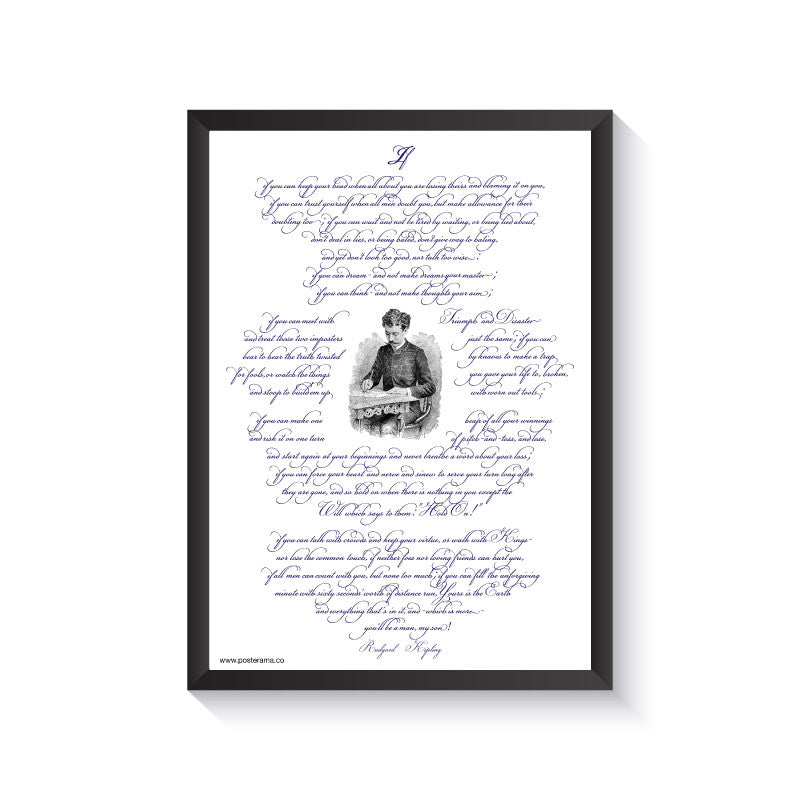 If
if you can keep your head when all about you are losing theirs and blaming it on you,
if you can trust yourself when all men doubt you, but make allowance for their
doubting too ; if you can wait and not be tired by waiting, or being lied about,
don't deal in lies, or being hated, don't give way to hating,
and yet don't look too good, nor talk too wise :
if you can dream - and not make dreams your master ;
if you can think - and not make thoughts your aim ;
if you can meet with Triumph and Disaster
and treat those two imposters just the same ; if you can
bear to hear the truth twisted by knaves to make a trap,
for fools, or watch the things you gave your life to, broken,
and stoop to build em up, with worn out tools ;
if you can make one heap of all your winnings
and risk it on one turn of pitch - and - toss, and lose,
and start again at your beginnings and never breathe a word about your loss ;
if you can force your heart and nerve and sinew to serve your turn long after
they are gone, and so hold on when there is nothing in you except the
Will which says to them: "Hold On!"
if you can talk with crowds and keep your virtue, or walk with Kings -
nor lose the common touch, if neither foes nor loving friends can hurt you,
if all men can count with you, but none too much ; if you can fill the unforgiving
minute with sixty seconds worth of distance run, Yours is the Earth
and everything that's in it, and - which is more -
you'll be a man, my son !
Rudyard Kipling
www.posterama.co